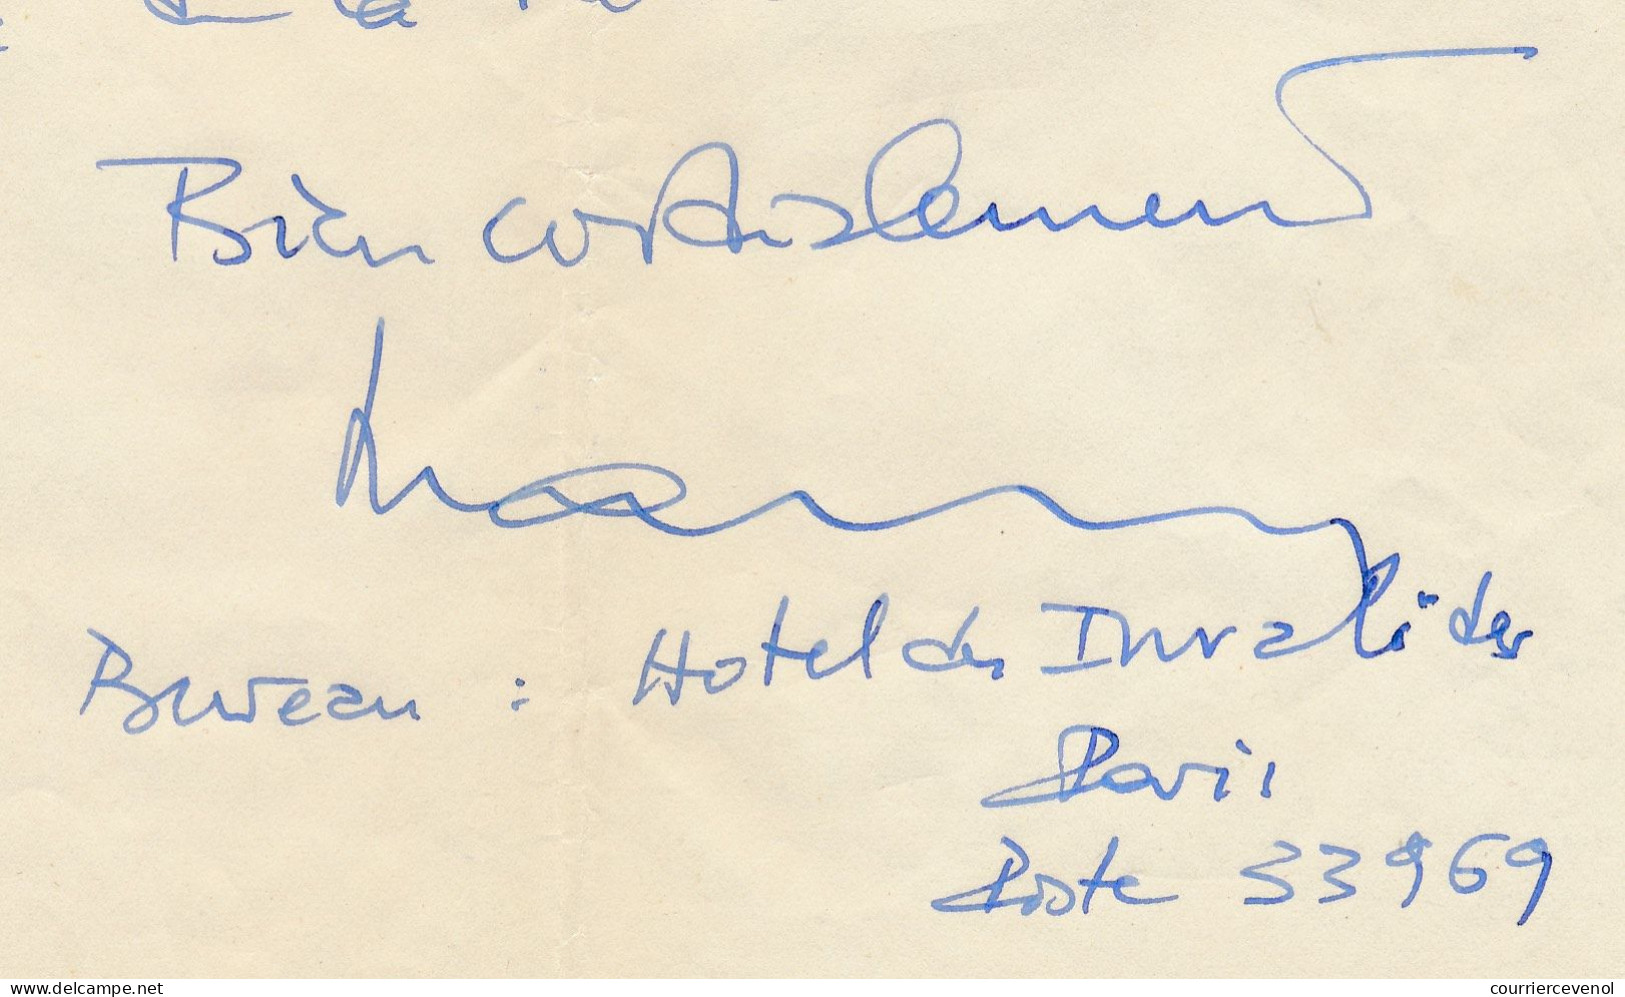 la
Bien cordialement
Bureau : Hotel des Invalides
Paris
Poste 33969
www.delcampe.net
courriercevenol